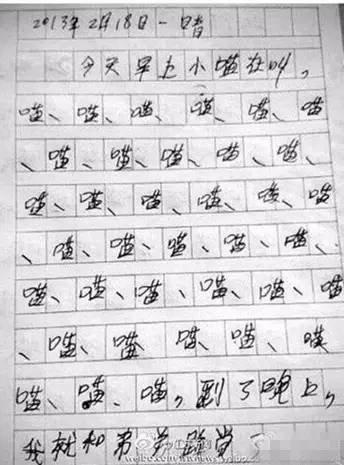 2013年2月18日一晴
今天早上小喵在叫，
喵、喵、喵、喵、喵、喵
、喵、喵、喵、喵、喵、
喵、喵、喵、喵、喵、喵
、喵、喵、喵、喵、喵、
喵、喵、喵、喵、喵、喵
、喵、喵 喵、喵、喵
喵、喵、喵，到了晚上，
我就和弟弟